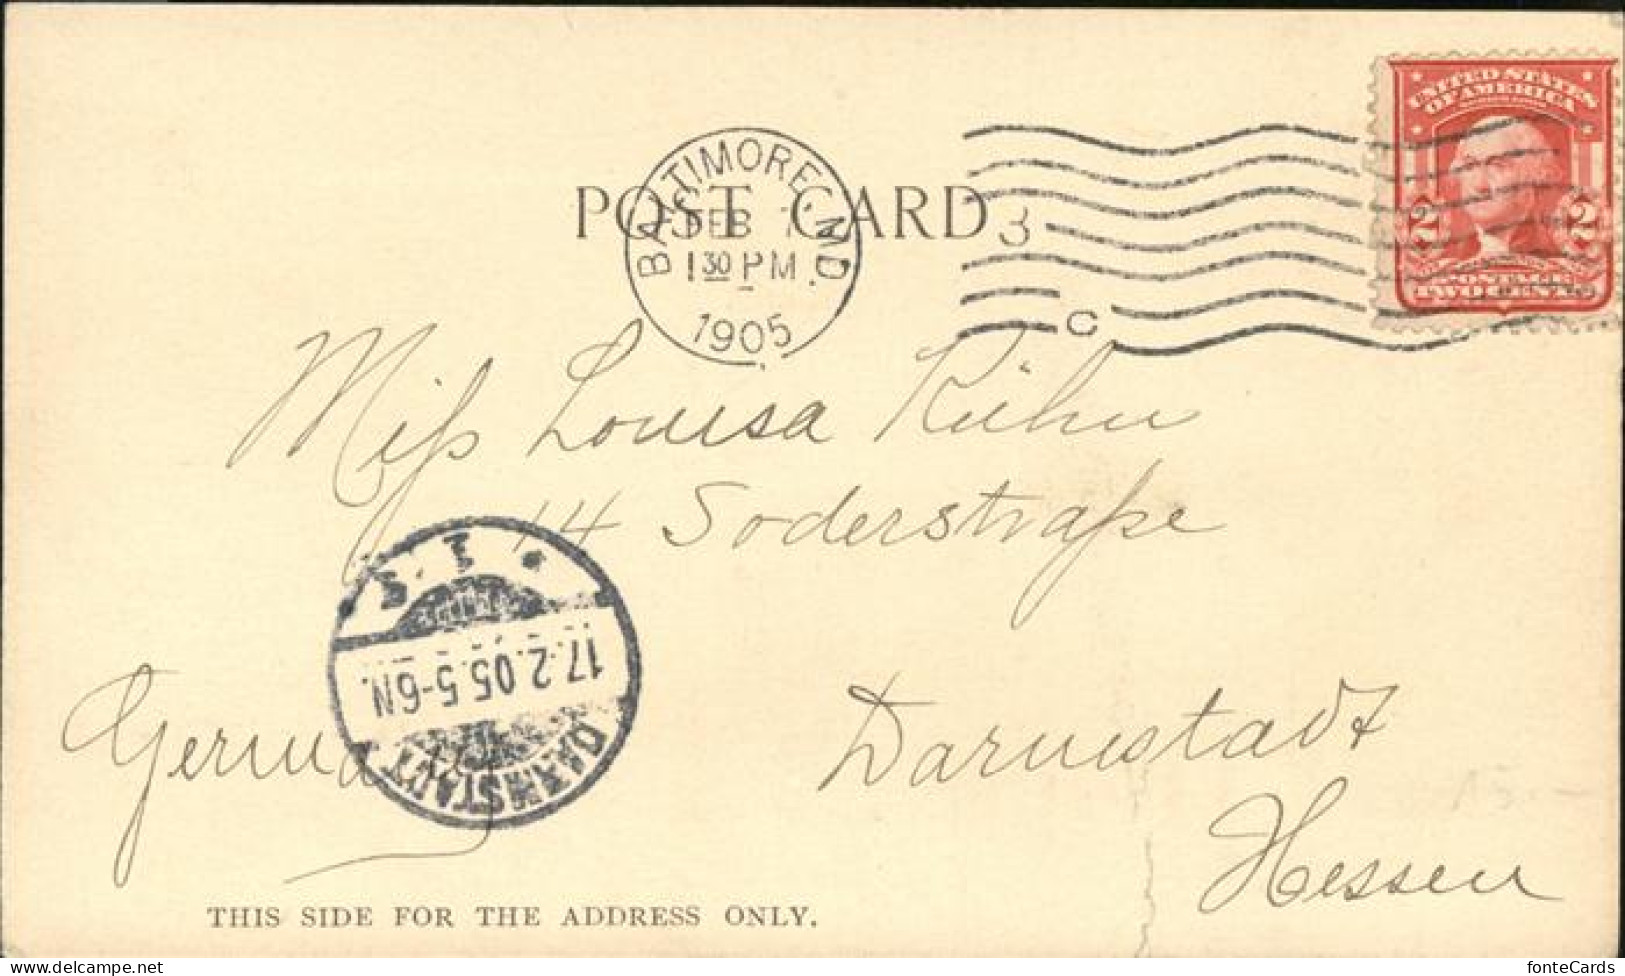 UNITED STATES
OF AMERICA
2 2
POSTAGE
TWO CENTS
POST CARD
BALTIMORE, MD.
FEB 7
1 30 PM
1905
3
C
Miſs Louisa Kühn
14 Soderstraße
Darmstadt
Hessen
Germany
17.2.05.5-6N.
DARMSTADT
15.-
THIS SIDE FOR THE ADDRESS ONLY.
www.delcampe.net
fonteCards